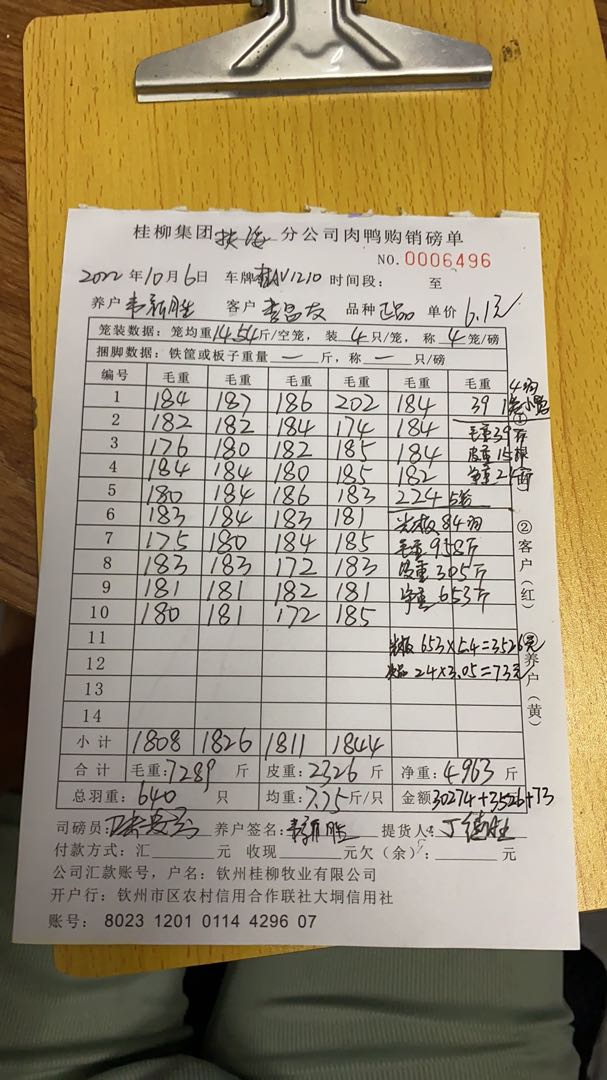 桂柳集团 扶海 分公司肉鸭购销磅单
NO. 0006496
2022年10月6日 车牌 桂AV1210 时间段： 至
养户 韦新胜 客户 李昌友 品种 正品 单价 6.1元
笼装数据：笼均重14.54斤/空笼，装 4 只/笼，称 4 笼/磅
捆脚数据：铁筐或板子重量 — 斤，称 — 只/磅
编号 毛重 毛重 毛重 毛重 毛重 毛重
1 184 187 186 202 184 39
2 182 182 184 174 184 毛重39斤
3 176 180 182 185 184 皮重15
4 184 184 180 185 182 净重24斤
5 180 184 186 183 224 5笼
6 183 184 183 181 光板84羽
7 175 180 184 185 毛重958斤
8 183 183 172 183 皮重305斤
9 181 181 182 181 净重653斤
10 180 181 172 185
11 光板 653×5.4=3526元
12 24×3.05=73元
13
14
小计 1808 1826 1811 1844
合计 毛重：7289 斤 皮重：2326 斤 净重：4963 斤
总羽重：640 只 均重：7.75斤/只 金额30274+3526+73
司磅员： 养户签名：韦新胜 提货人：丁德胜
付款方式：汇 元 收现 元欠（余）： 元
公司汇款账号，户名：钦州桂柳牧业有限公司
开户行：钦州市区农村信用合作联社大垌信用社
账号：8023 1201 0114 4296 07
4羽
①
②客户（红）
③养户（黄）